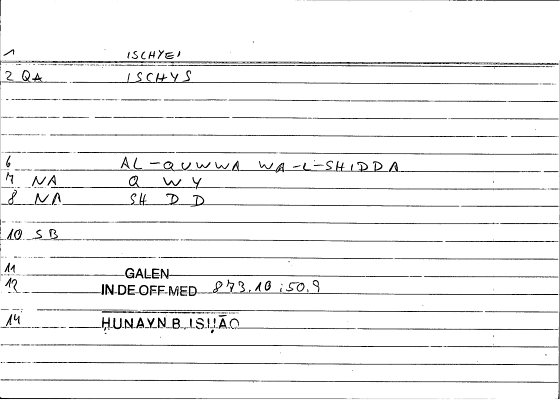 1 ISCHYEI
2 QA ISCHYS
6 AL-QUWWA WA-L-SHIDDA
7 NA Q W Y
8 NA SH D D
10 SB
11 GALEN
12 IN DE OFF MED 873.10:50.9
14 ḤUNAYN B. ISḤĀQ